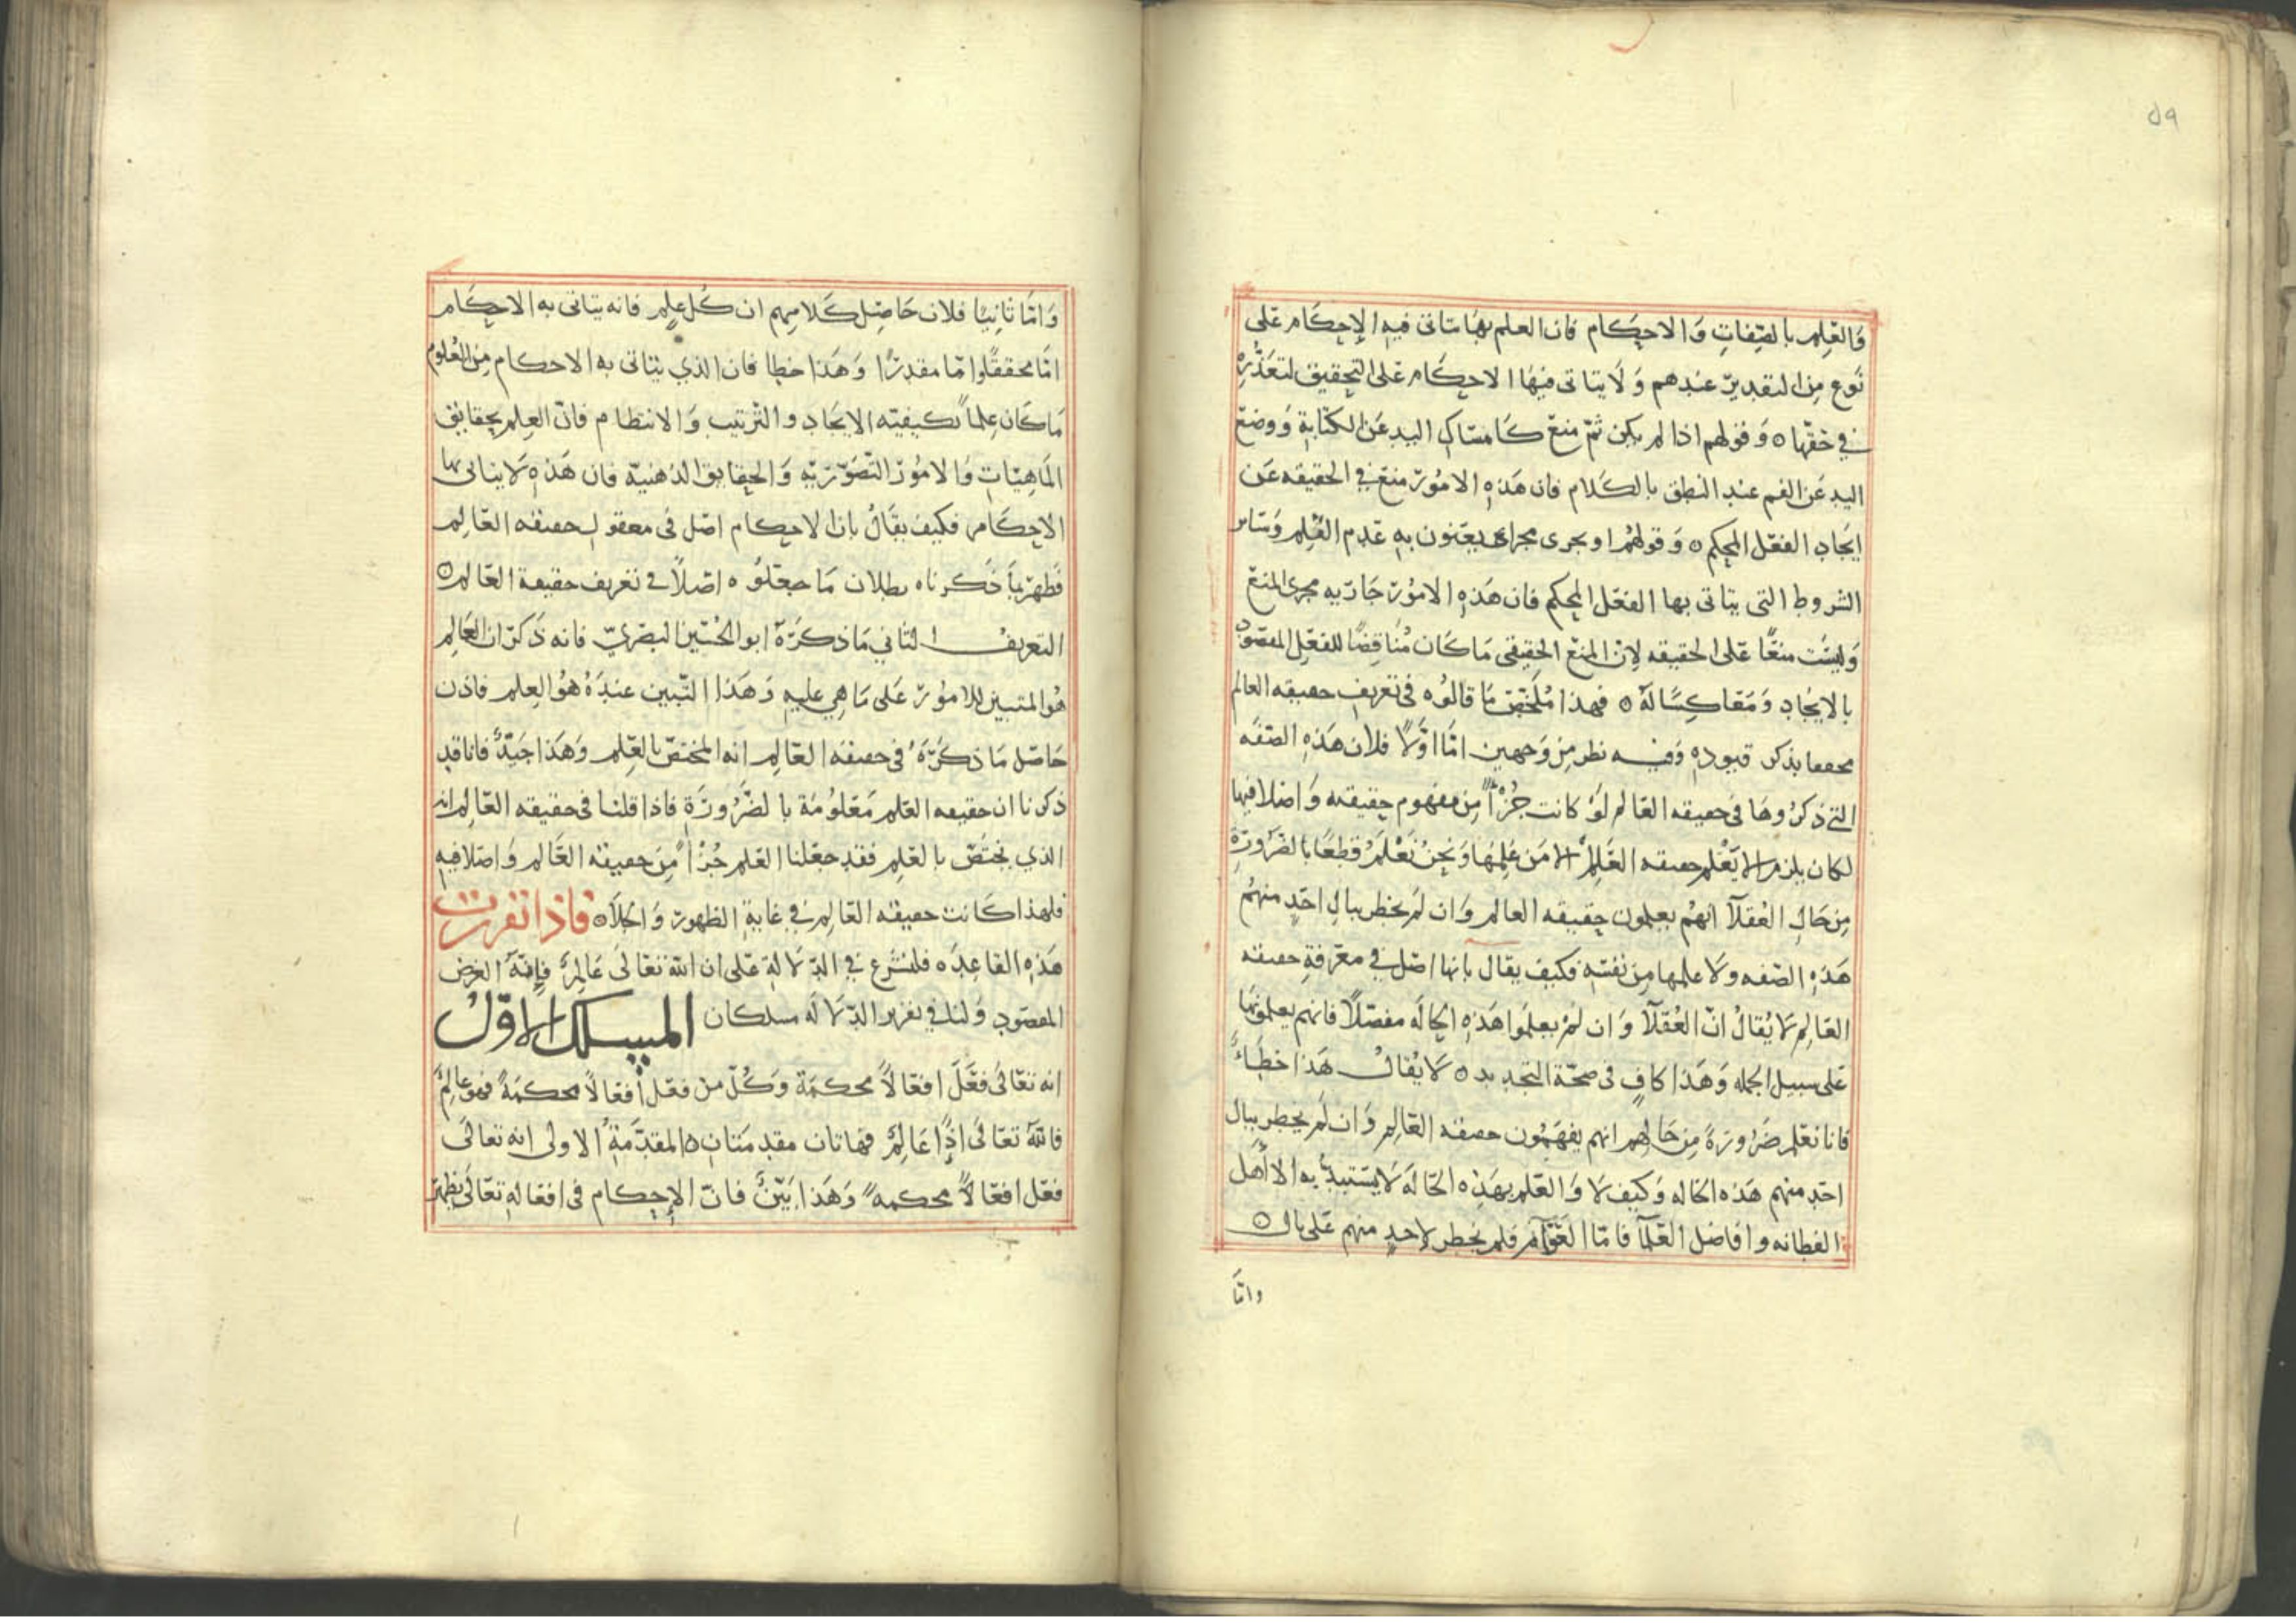 ٥٩
وَالعِلم بالصِفاتِ وَالاحكام فان العلم بها يتاتى فيه الاِحكام على
نَوع مِن التقدير عندهم وَلَا يتاتى فيها الاحكام على التحقيق لتعذّره
في حَقّها ٥ وَقولهم اذا لم يكن ثمّ منع كَامسَاكِ اليد عَن الكتَابة وَوضع
اليد عَن الفم عند النطق بالكلام فان هَذهِ الامُور منع في الحقيقه عَن
ايجَادِ الفعل المحكم ٥ وَقولهُم او يجرى مجراه يعنون به عَدم العِلم وَسَاير
الشروط التى يتاتى بها الفعل المحكم فان هَذهِ الامُور جَاريه مجرى المنع
وَليسَت منعًا على الحقيقه لِان المنع الحقيقى مَا كَان مُنَاقِضًا للفعل المقصود
بالايجَادِ وَمعَاكِسًا لهُ ٥ فهذا مُلخّص مَا قالوُه فى تعريف حقيقه العالم
محققا بذكر قيوده وَفيـه نظر مِن وَجهين امَّا اوّلًا فلان هَذهِ الصفه
التي ذكرُوهَا في حقيقه العالم لَوْ كانت جُزْأً مِن مفهوم حقيقته وَاصلا فيها
لكان يلزم الا يَعْلم حقيقه العَالم الا مَن عَلِمهَا وَنحنُ نَعْلَمُ قطعًا بالضرورَةِ
مِن حَالِ العُقلآ انهُم يعلمون حقيقه العالم وَان لم يخطر ببالِ احَدٍ منهُم
هَذهِ الصفه ولا علمها مِن نفسَهِ فكيف يقال بانها اصل في معرفةِ حقيقه
العَالم لَا يُقالُ انّ العُقَلآ وَان لمْ يعلموا هَذهِ الحَالَه مفصّلاً فانهم يعلمونها
على سبيل الجمله وَهَذا كافٍ فى صحّة التحديد ٥ لَا يُقالُ هَذا خَطَاءً
فانا نعلم ضَرُورَةً مِن حَالهم انهم يفهمُون حقيقه العَالِم وَان لَم يخطر ببال
احَدٍ منهم هَذه الحاله وَكيف لَا وَالعِلم بهَذِه الحَالهَ لَا يَستبدُّ به الا أهل
الفطانه وافاضل العُلمآ فامّا العَوَّام فلم يخطر لاحدٍ منهم عَلى بالٍ ٥
وامَّا
وَامَّا ثانِيًا فلان حَاصِل كَلامِهم ان كُل عِلم فانه يتاتى به الاحكَام
امَّا محققًا وامّا مقدرًا وَهَذا خطا فان الذي يتاتى به الاحكام مِن العُلوم
مَا كَان عِلماً بكيفيّه الايجَادِ والترتيب وَالانتظام فانّ العِلم بحقايق
المَاهِيّاتِ وَالامُور التصَوّريّهِ وَالحقايق الذهنيّه فان هَذهِ لَا يتاتى بها
الاحكَام فكيف يقَالُ بان الاحكام اصَل فى معقولِ حقيقه العَالم
فَظهَر بمَا ذكرناه بطلان مَا جعَلوُه اصلًا في تعريف حقيقة العَالم ٥
التعريفُ الثاني مَا ذكرَهُ ابو الحُسَين البصَريّ فانه ذَكرَ ان العَالِم
هُوَ المتبين للامُور عَلى مَا هِي عليهِ وَهَذا التّبين عندَهُ هُوَ العِلم فاذن
حَاصِل مَا ذكرَهُ في حقيقه العَالِم انه المختصّ بالعِلم وَهَذا جَيّدٌ فانا قد
ذكرنا ان حقيقه العِلم مَعْلوُمَة بالضَّرُورَةِ فاذا قلنا في حقيقه العَالِم انه
الذي يختصّ بالعِلم فقد جعَلنا العِلم جُزْأً مِن حقيقه العَالم وَاصلا فيهِ
فلهذا كَانت حقيقه العَالِم في غاية الظهور وَالجلآ ٥ فاذا تقررت
هَذهِ القاعِدَه فلنشرع في الدّلالة على ان الله تعَالىَ عَالِمٌ فإِنَّهُ الغرض
المقصود وَلنا في تقرير الدّلَالَه مسلكان المسلك الاوّلُ
انه تعَالىَ فعَّلَ افعَالاً محكمَة وَكُلّ من فعَل أفعَالاً محكمَةً فهو عَالِمٌ
فاللهُ تعَالىَ اذًا عَالِمٌ فهَاتان مقدمَتانِ ٥ المقدّمَةُ الاولى انه تعالىَ
فعَل افعَالاً محكمه ً وَهَذا بَيّنٌ فانّ الإحكام فى افعَالهِ تعَالىَ يظهر